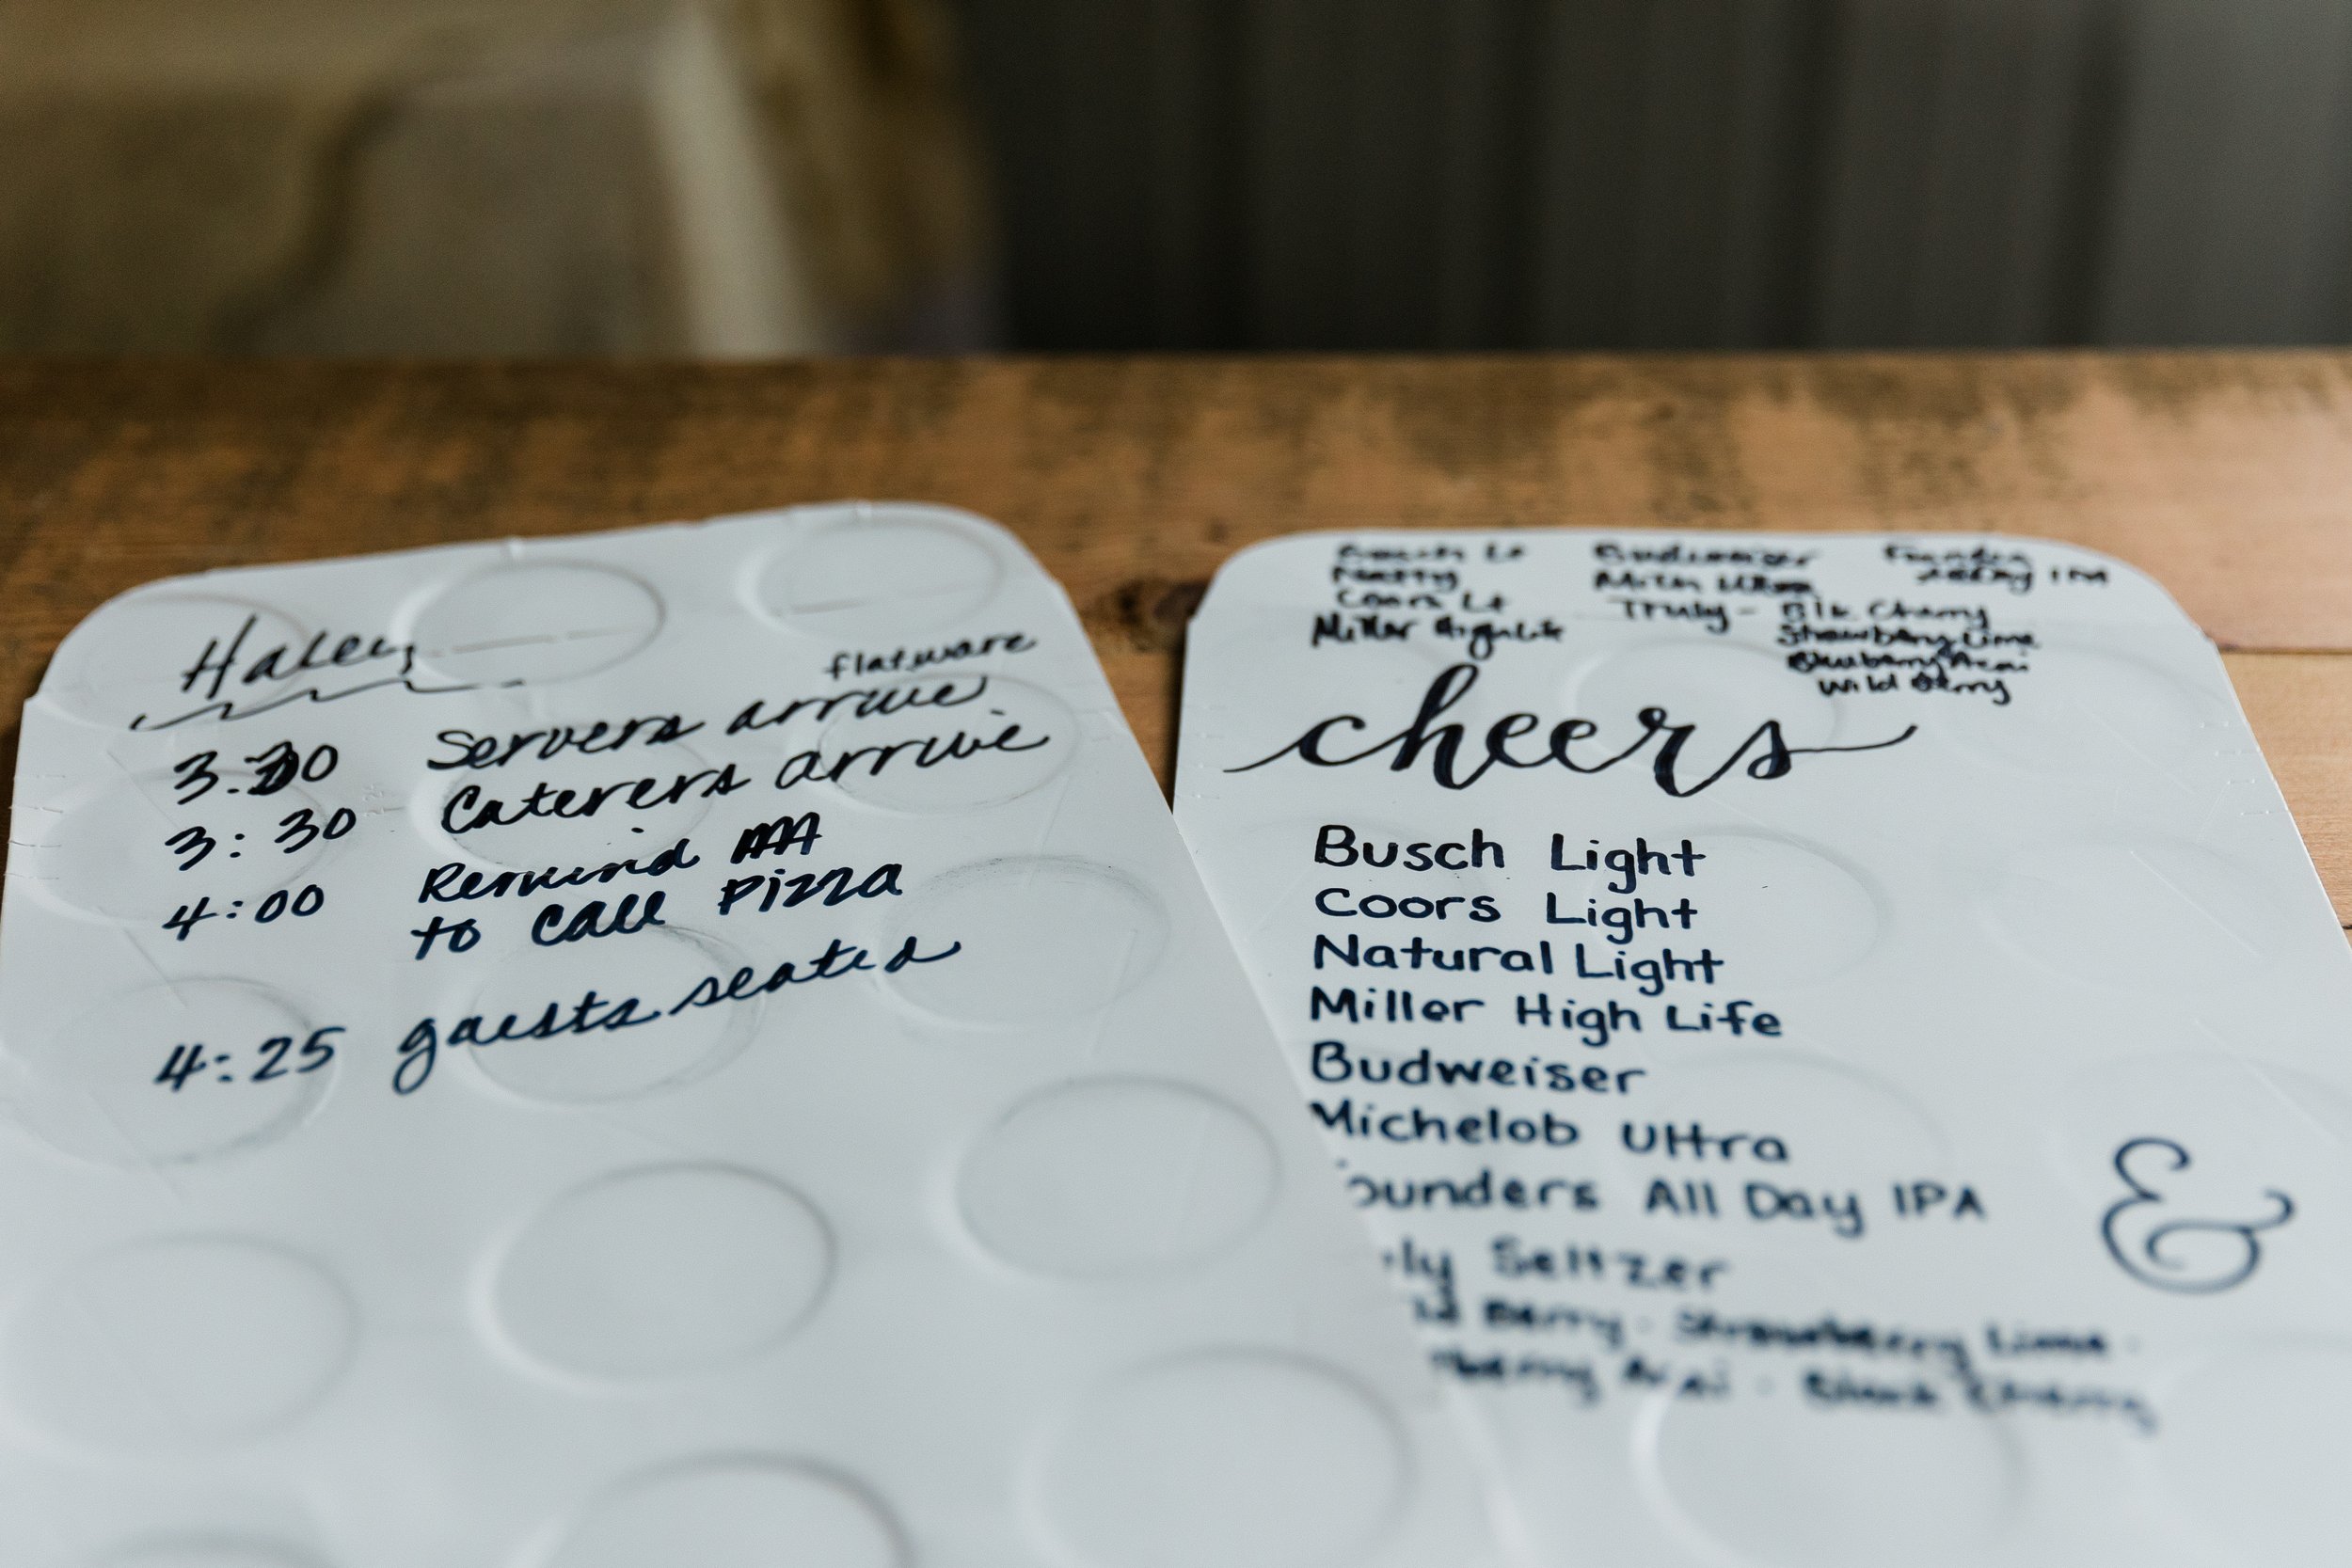 Haley
flatware
3:30 Servers arrive
3:30 Caterers arrive
4:00 Remind
to call pizza
4:25 guests seated
Busch Lt Budweiser
Natty Mich Ultra
Coors Lt Truly - Blk Cherry
Miller High Life Strawberry Lime
Blueberry Acai
Wild Berry
cheers
Busch Light
Coors Light
Natural Light
Miller High Life
Budweiser
Michelob Ultra
ounders All Day IPA
&
ly Seltzer
Berry · Strawberry Lime ·
berry Acai · Black Cherry